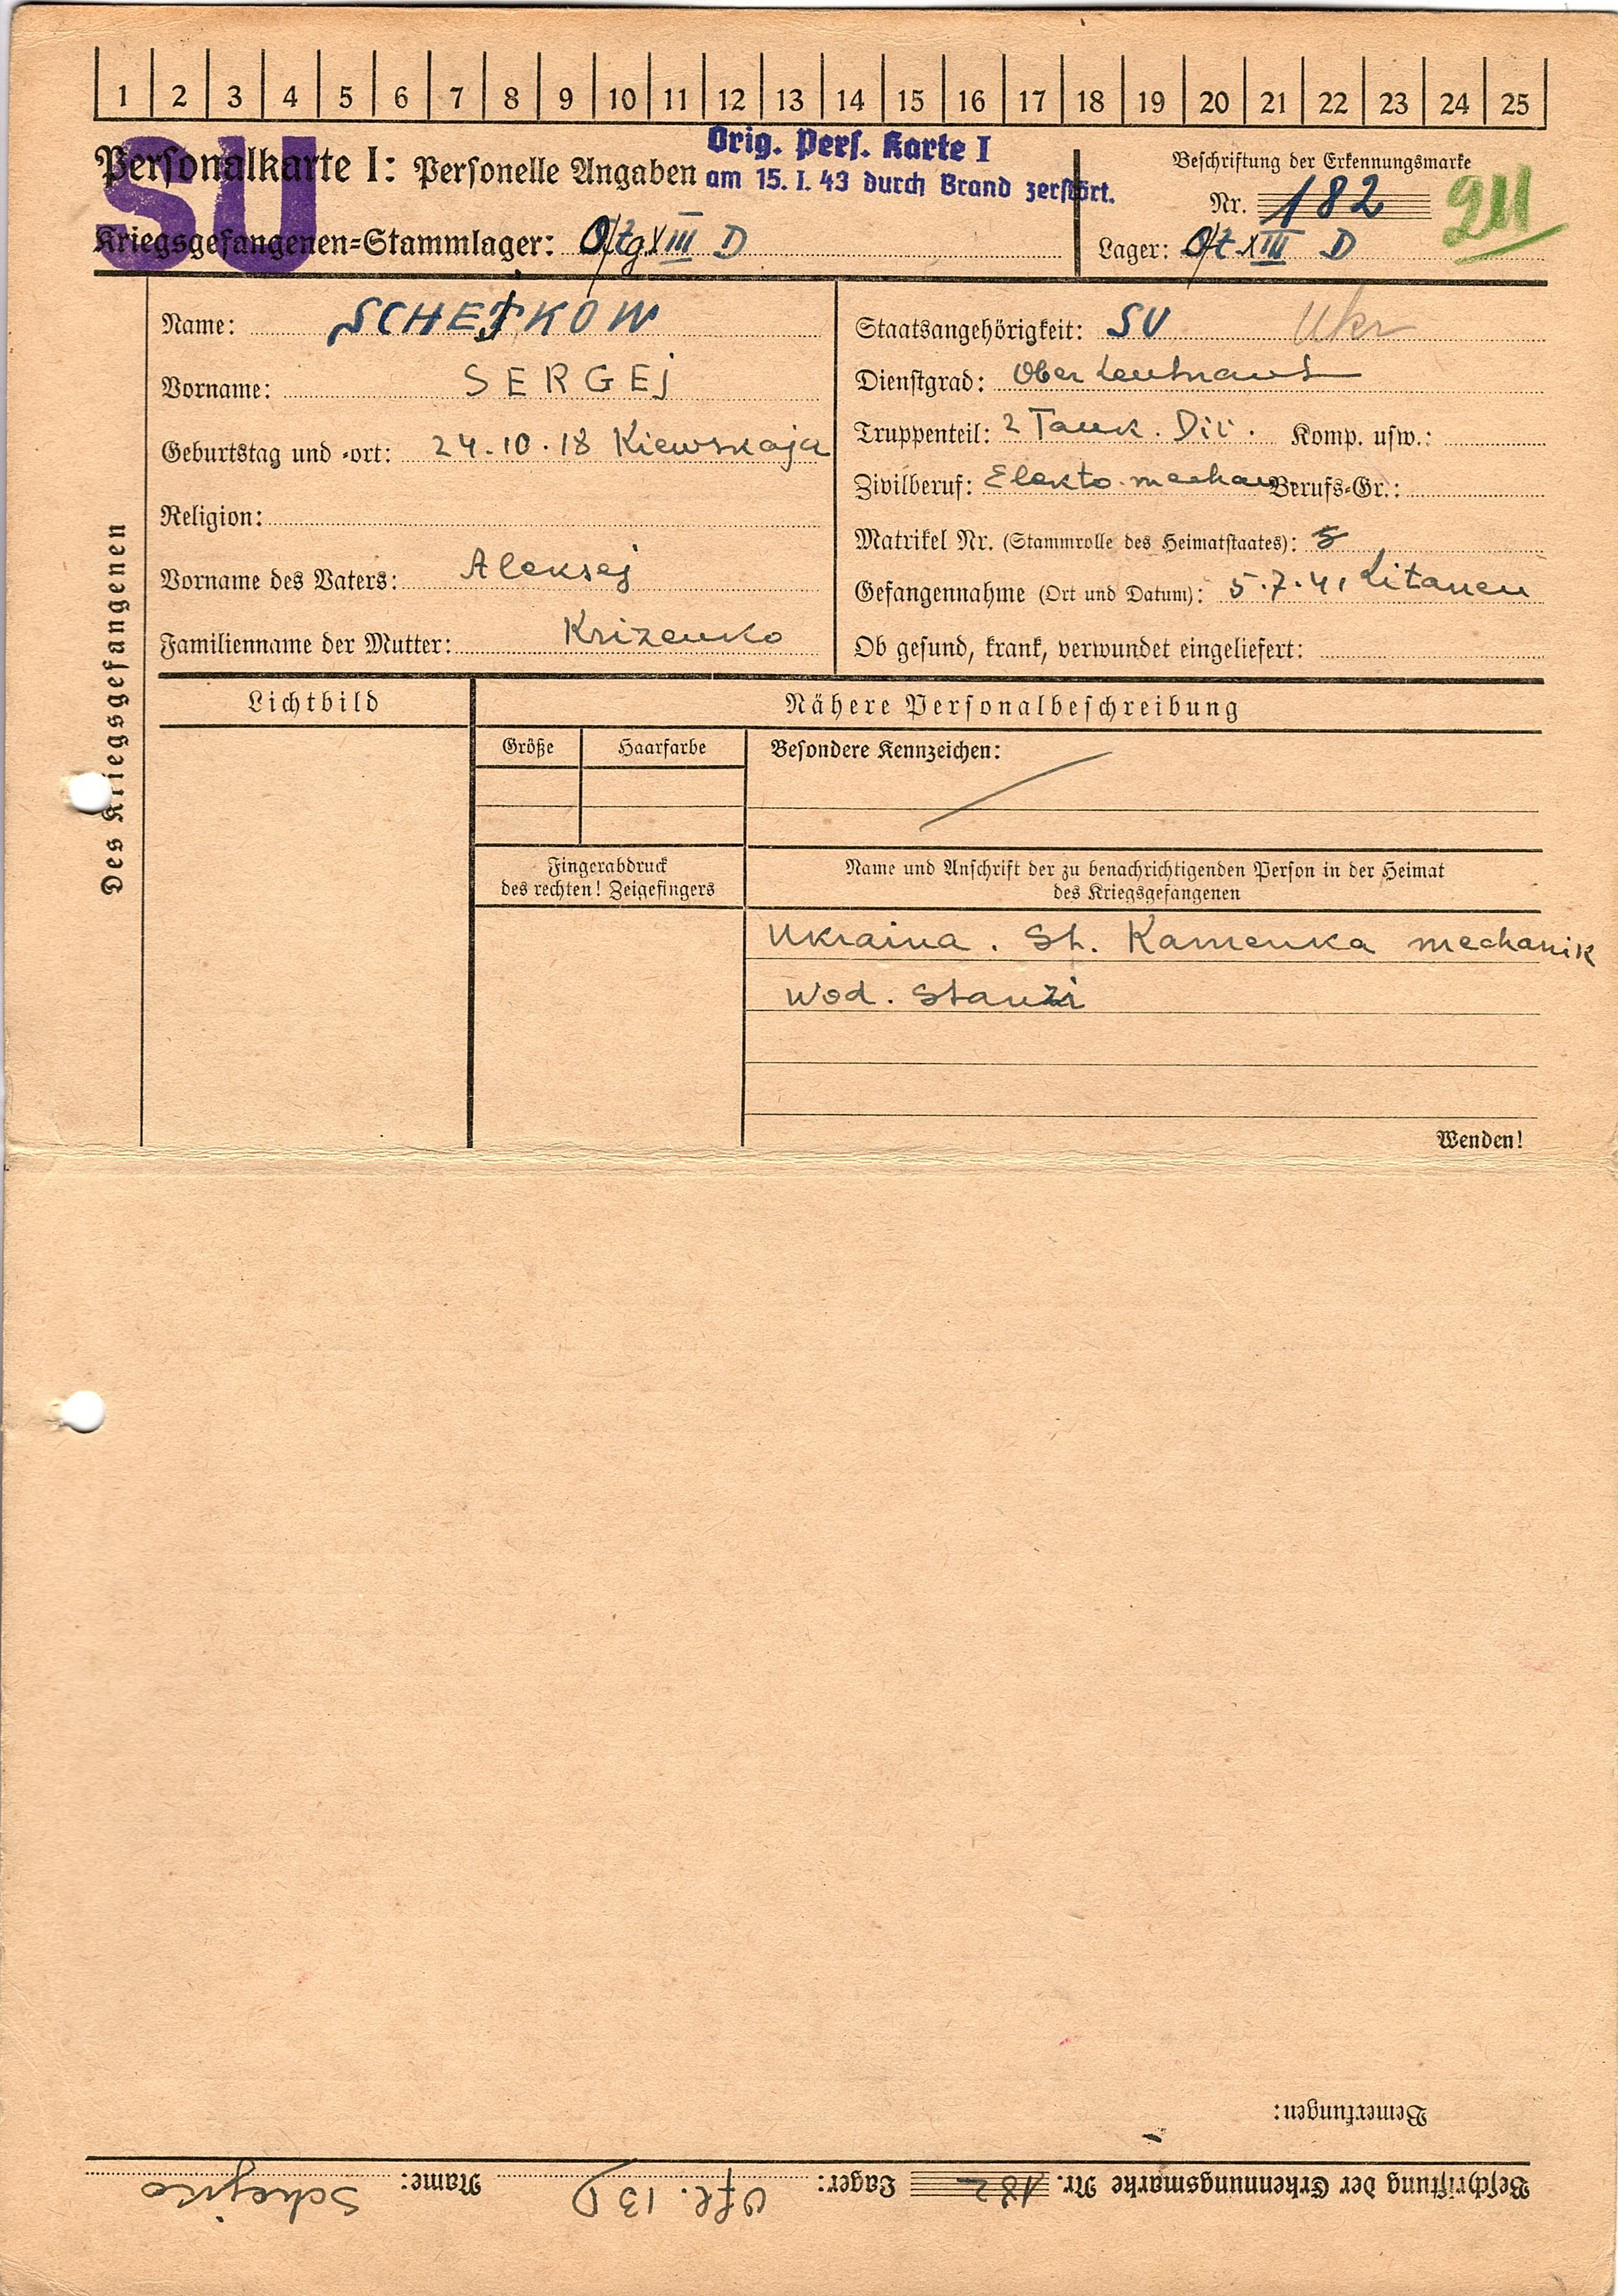 1 2 3 4 5 6 7 8 9 10 11 12 13 14 15 16 17 18 19 20 21 22 23 24 25
SU
Orig. Pers. Karte I
am 15. I. 43 durch Brand zerstört.
Personalkarte I: Personelle Angaben
Kriegsgefangenen-Stammlager: XIII D
Beschriftung der Erkennungsmarke
Nr. 182
Lager: XIII D
Des Kriegsgefangenen
Name: SCHEJKOW
Vorname: SERGEj
Geburtstag und -ort: 24.10.18 Kiewskaja
Religion:
Vorname des Vaters: Aleksej
Familienname der Mutter: Krizenko
Staatsangehörigkeit: SU Ukr
Dienstgrad: Oberleutnant
Truppenteil: 2 Tank. Div. Komp. usw.:
Zivilberuf: Elekto.mechan Berufs-Gr.:
Matrikel Nr. (Stammrolle des Heimatstaates):
Gefangennahme (Ort und Datum): 5.7.41 Litauen
Ob gesund, krank, verwundet eingeliefert:
Lichtbild
Nähere Personalbeschreibung
Größe Haarfarbe
Besondere Kennzeichen:
Fingerabdruck
des rechten! Zeigefingers
Name und Anschrift der zu benachrichtigenden Person in der Heimat
des Kriegsgefangenen
Ukraina. St. Kamenka mechanik
Wod. Stanzi
Wenden!
Bemerkungen:
Beschriftung der Erkennungsmarke Nr. 182 Lager: Ofl. 13 D Name: Schejko